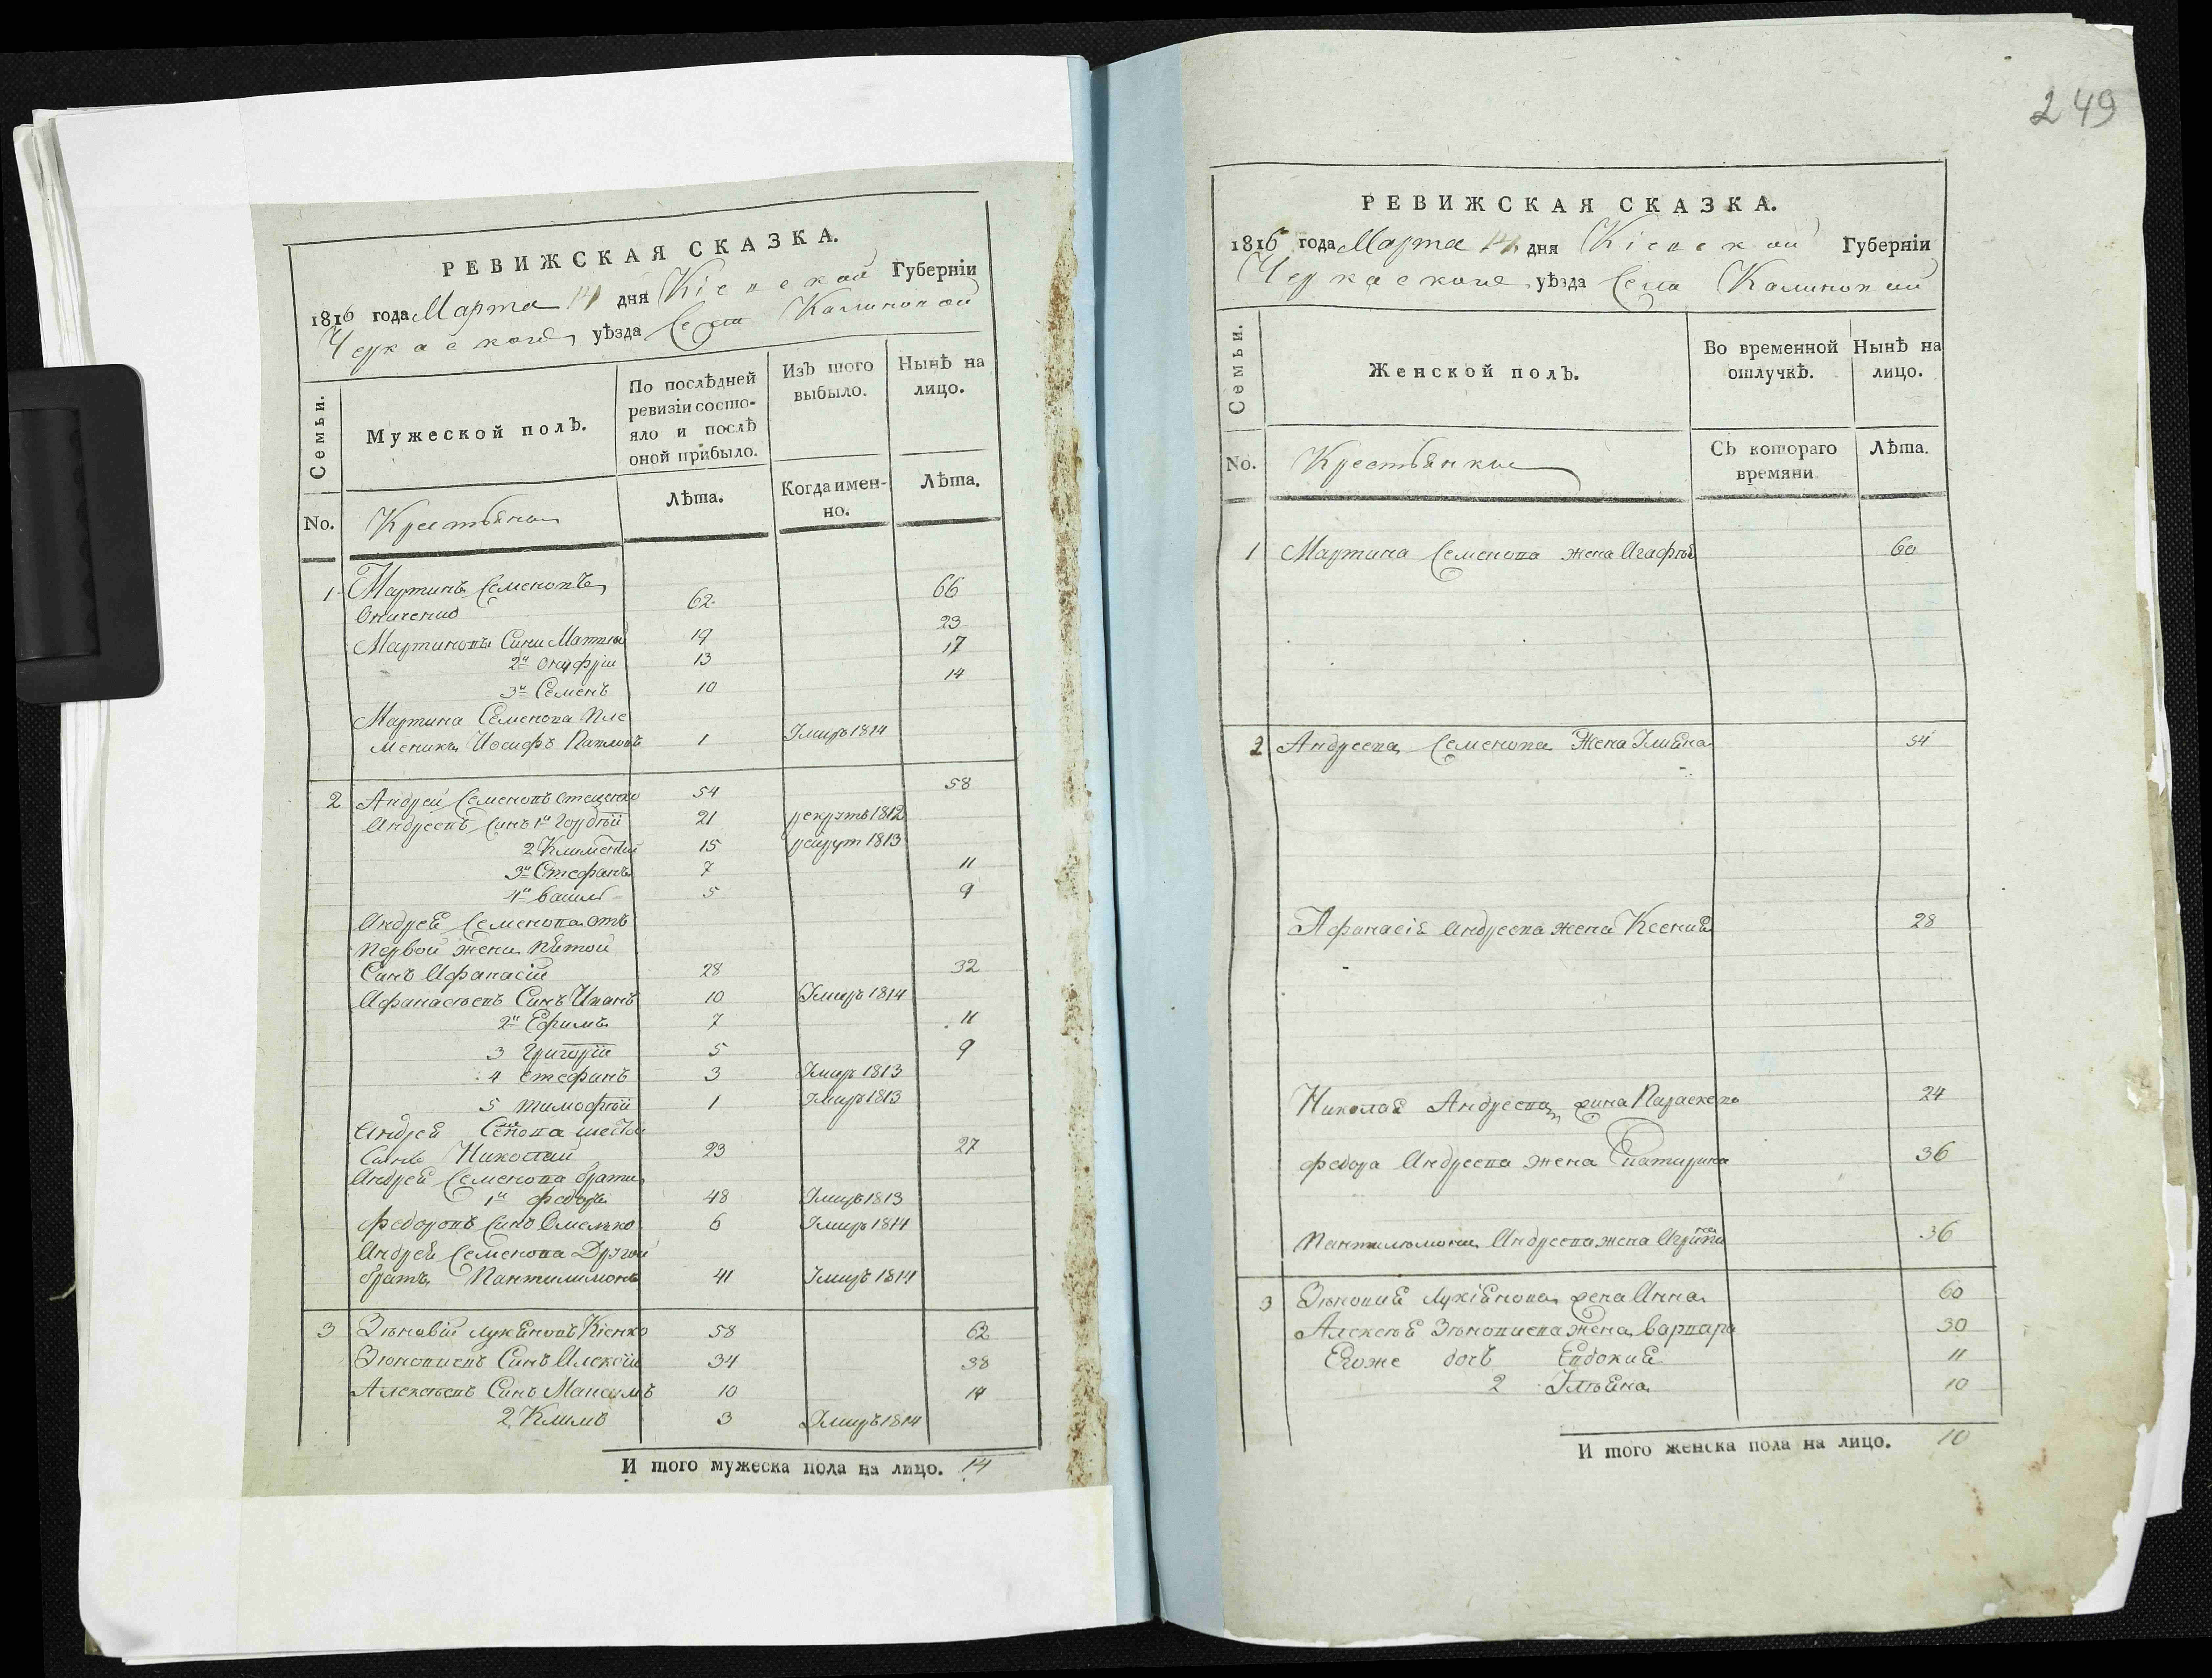 РЕВИЖСКАЯ СКАЗКА.
1816 года Марта 14 дня Кіевской Губерніи
Черкаского уѣзда Села Калиновой
Семьи.
Мужеской полъ.
По послѣдней ревизіи состо-
яло и послѣ
оной прибыло.
Изъ того
выбыло.
Нынѣ на
лицо.
No.
Крестьяне
Лѣта.
Когда имен-
но.
Лѣта.
1 Мартинъ Семеновъ
62 66
Мартиновы Сини Матвѣй 19 23
2й Онуфрій 13 17
3й Семенъ 10 14
Мартина Семенова Пле
меникъ Иосифъ Павловъ 1 Умиръ 1814
2 Андрей Семеновъ Стеценко 54 58
Андреевъ Синъ 1й Гордѣй 21 рекрутъ 1812
2 Климентий 15 рекрут 1813
3й Стефанъ 7 11
4й Василь 5 9
Андрея Семенова отъ
Первой жени пятой
Синъ Афанасій 28 32
Афанасьевъ Синъ Иванъ 10 Умиръ 1814
2й Ефимъ 7 11
3 Григорій 5 9
4 Стефанъ 3 Умиръ 1813
5 Тимофѣй 1 Умиръ 1813
Андрея Семенова шестой
Синъ Николай 23 27
Андрея Семенова брати
1й Федоръ 48 Умиръ 1813
Федоровъ Синъ Омелько 6 Умиръ 1814
Андрея Семенова Другой
братъ Пантилимонъ 41 Умиръ 1814
3 Зѣновій Лукяновъ Кіенко 58 62
Зѣновиевъ Синъ Алексѣй 34 38
Алексѣевъ Синъ Максимъ 10 14
2 Климъ 3 Умиръ 1814
И того мужеска пола на лицо. 14
249
РЕВИЖСКАЯ СКАЗКА.
1816 года Марта 14 дня Кіевской Губерніи
Черкаского уѣзда Села Калиновой
Семьи.
Женской полъ.
Во временной
отлучкѣ.
Нынѣ на
лицо.
No.
Крестьянки
Съ котораго
времяни.
Лѣта.
1 Мартина Семенова жена Агафья 60
2 Андреева Семенова Жена Улияна 54
Афанасія Андреева жена Ксения 28
Николая Андреева жина Параскева 24
Федора Андреева жена Катирина 36
Пантилимона Андреева жена Агрипина 36
3 Зѣновия Лукіянова жена Анна 60
Алексѣя Зѣновиева жена Варвара 30
Егоже дочь Евдокия 11
2 Улияна 10
И того женска пола на лицо. 10